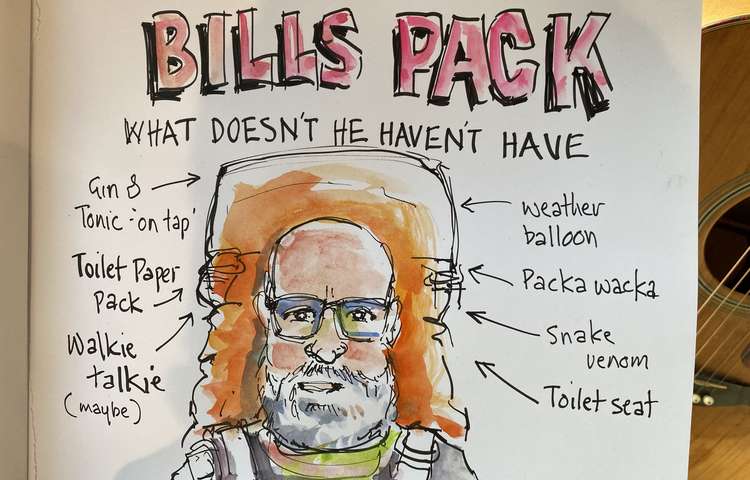 BILLS PACK
WHAT DOESN'T HE HAVEN'T HAVE
Gin &
Tonic 'on tap'
Toilet Paper
Pack
Walkie
talkie
(maybe)
weather
balloon
Packa wacka
Snake
venom
Toilet seat